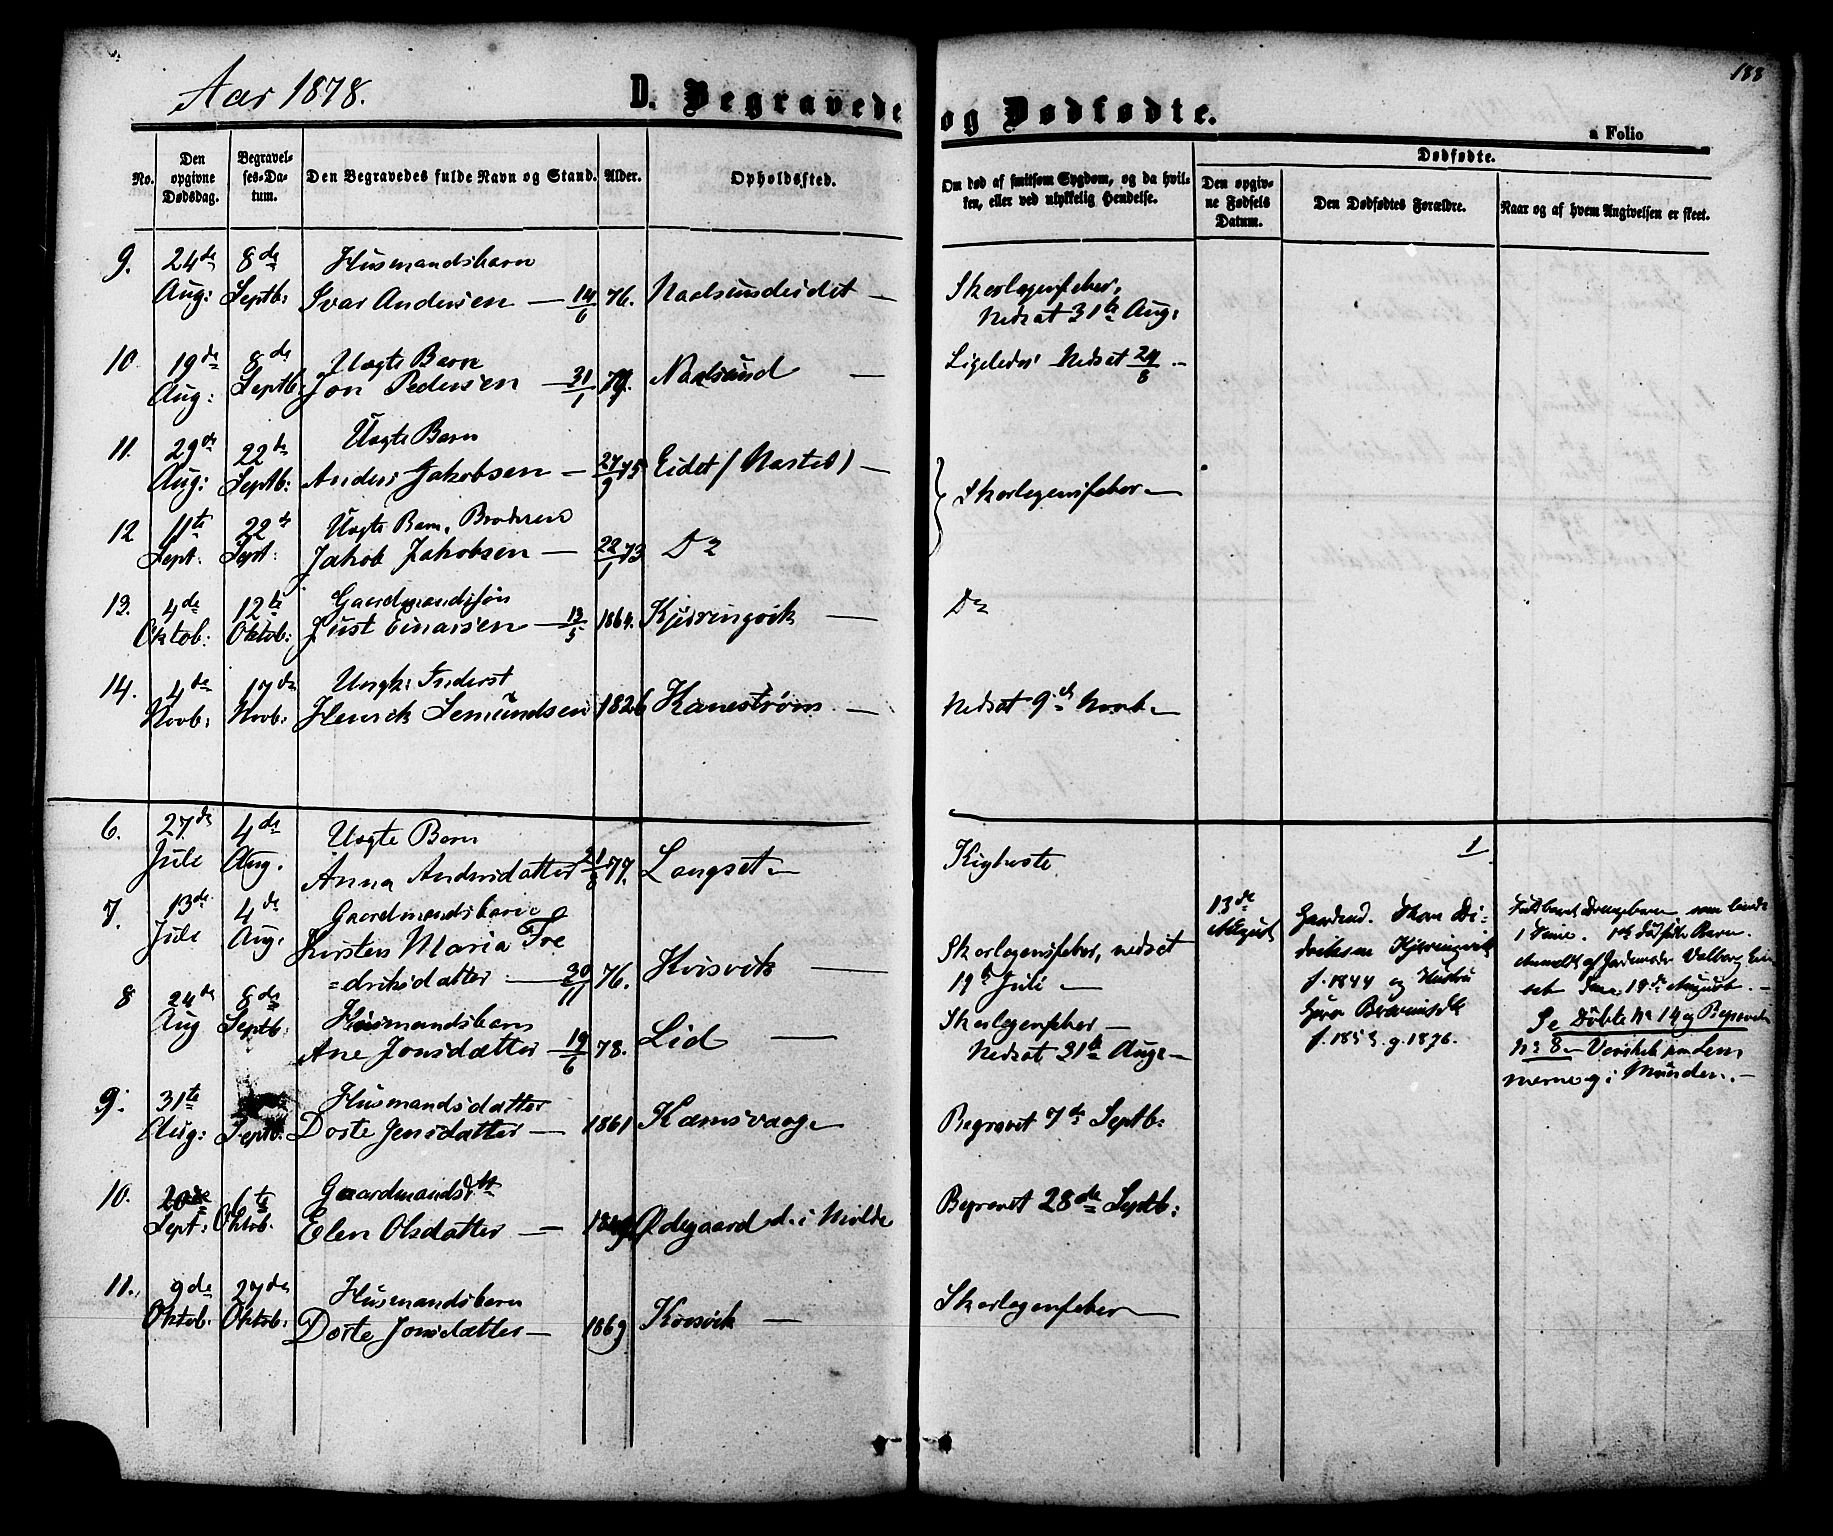 Aar 1878.
D. Begravede og Dødfødte.
188
a Folio
No.
Den opgivne Dødsdag.
Begravelses-Datum.
Den Begravedes fulde Navn og Stand.
Alder.
Opholdssted.
Om død af smitsom Sygdom, og da hvilken, eller ved ulykkelig Hendelse.
Dødfødte.
Den opgivne Fødsels Datum.
Den Dødfødtes Forældre.
Naar og af hvem Angivelsen er skeet.
9. 24de 8de Husmandsbarn
Aug: Septb: Ivar Andersen — 14/6 76. Nadsundeidet — Skarlagensfeber,
Nedsat 31te Aug:
10 19de 8de Uægte Barn
Aug: Septb: Jon Pedersen — 31/1 Nadsund — Ligeledes Nedsat 24/8 —
11. 29de 22de Uægte Barn
Aug: Septb: Anders Jakobsen — 27/9 75 Eidet — Skarlagensfeber —
12 11te 22de Uægte Barn, Broderen
Sept: Sept: Jakob Jakobsen — 22/1 73 Do
13. 4de 12te Gaardmandssøn
Oktob: Oktob: Just Einarsen — 13/5 1864. Kjørringvik — Do
14. 4de 17de Ungk: Inderst
Novb: Novb: Henrik Semundsen 1826 Kanestrøm — Nedsat 9de Novb. —
6. 27de 4de Uægte Barn
Jule Aug. Anna Andersdatter 77. Langset — Kighoste
1
7. 13de 4de Gaardmandsbarn
Jule Aug. Kirsten Maria Fre
=driksdatter — 30/11 76. Kvisvik — Skarlagensfeber, nedsat
19de Juli —
8 24de 8de Husmandsbarn
Aug Septb: Ane Jonsdatter — 19/6 78. Lid — Skarlagensfeber —
Nedsat 31te Aug: —
13de August
Gaardmd. Di=
driksen Kjørringvik
f. 1844 og Hustru
f. 1853 g. 1876.
Fuldbaaret Drengebarn som levde
1 Time. 1ste Dødfødte Barn.
Anmeldt af Jordemoder Valborg
19de August. —
Se Døbte No 14 og Begravede
No 8 — Lem
merne og i Munden. —
9. 31te Husmandsdatter
Aug: Septb: Dorte Jensdatter — 1861 Kamsvaag — Begravet 7de Septb:
10. 20de 6te Gaardmandsdtr
Sept: Oktob. Elen Olsdatter — Ødegaard d. i Molde Begravet 28de Septb:
11. 9de 27de Husmandsbarn
Oktob. Oktob: Dorte Jonsdatter — 1869 Kvisvik — Skarlagensfeber —